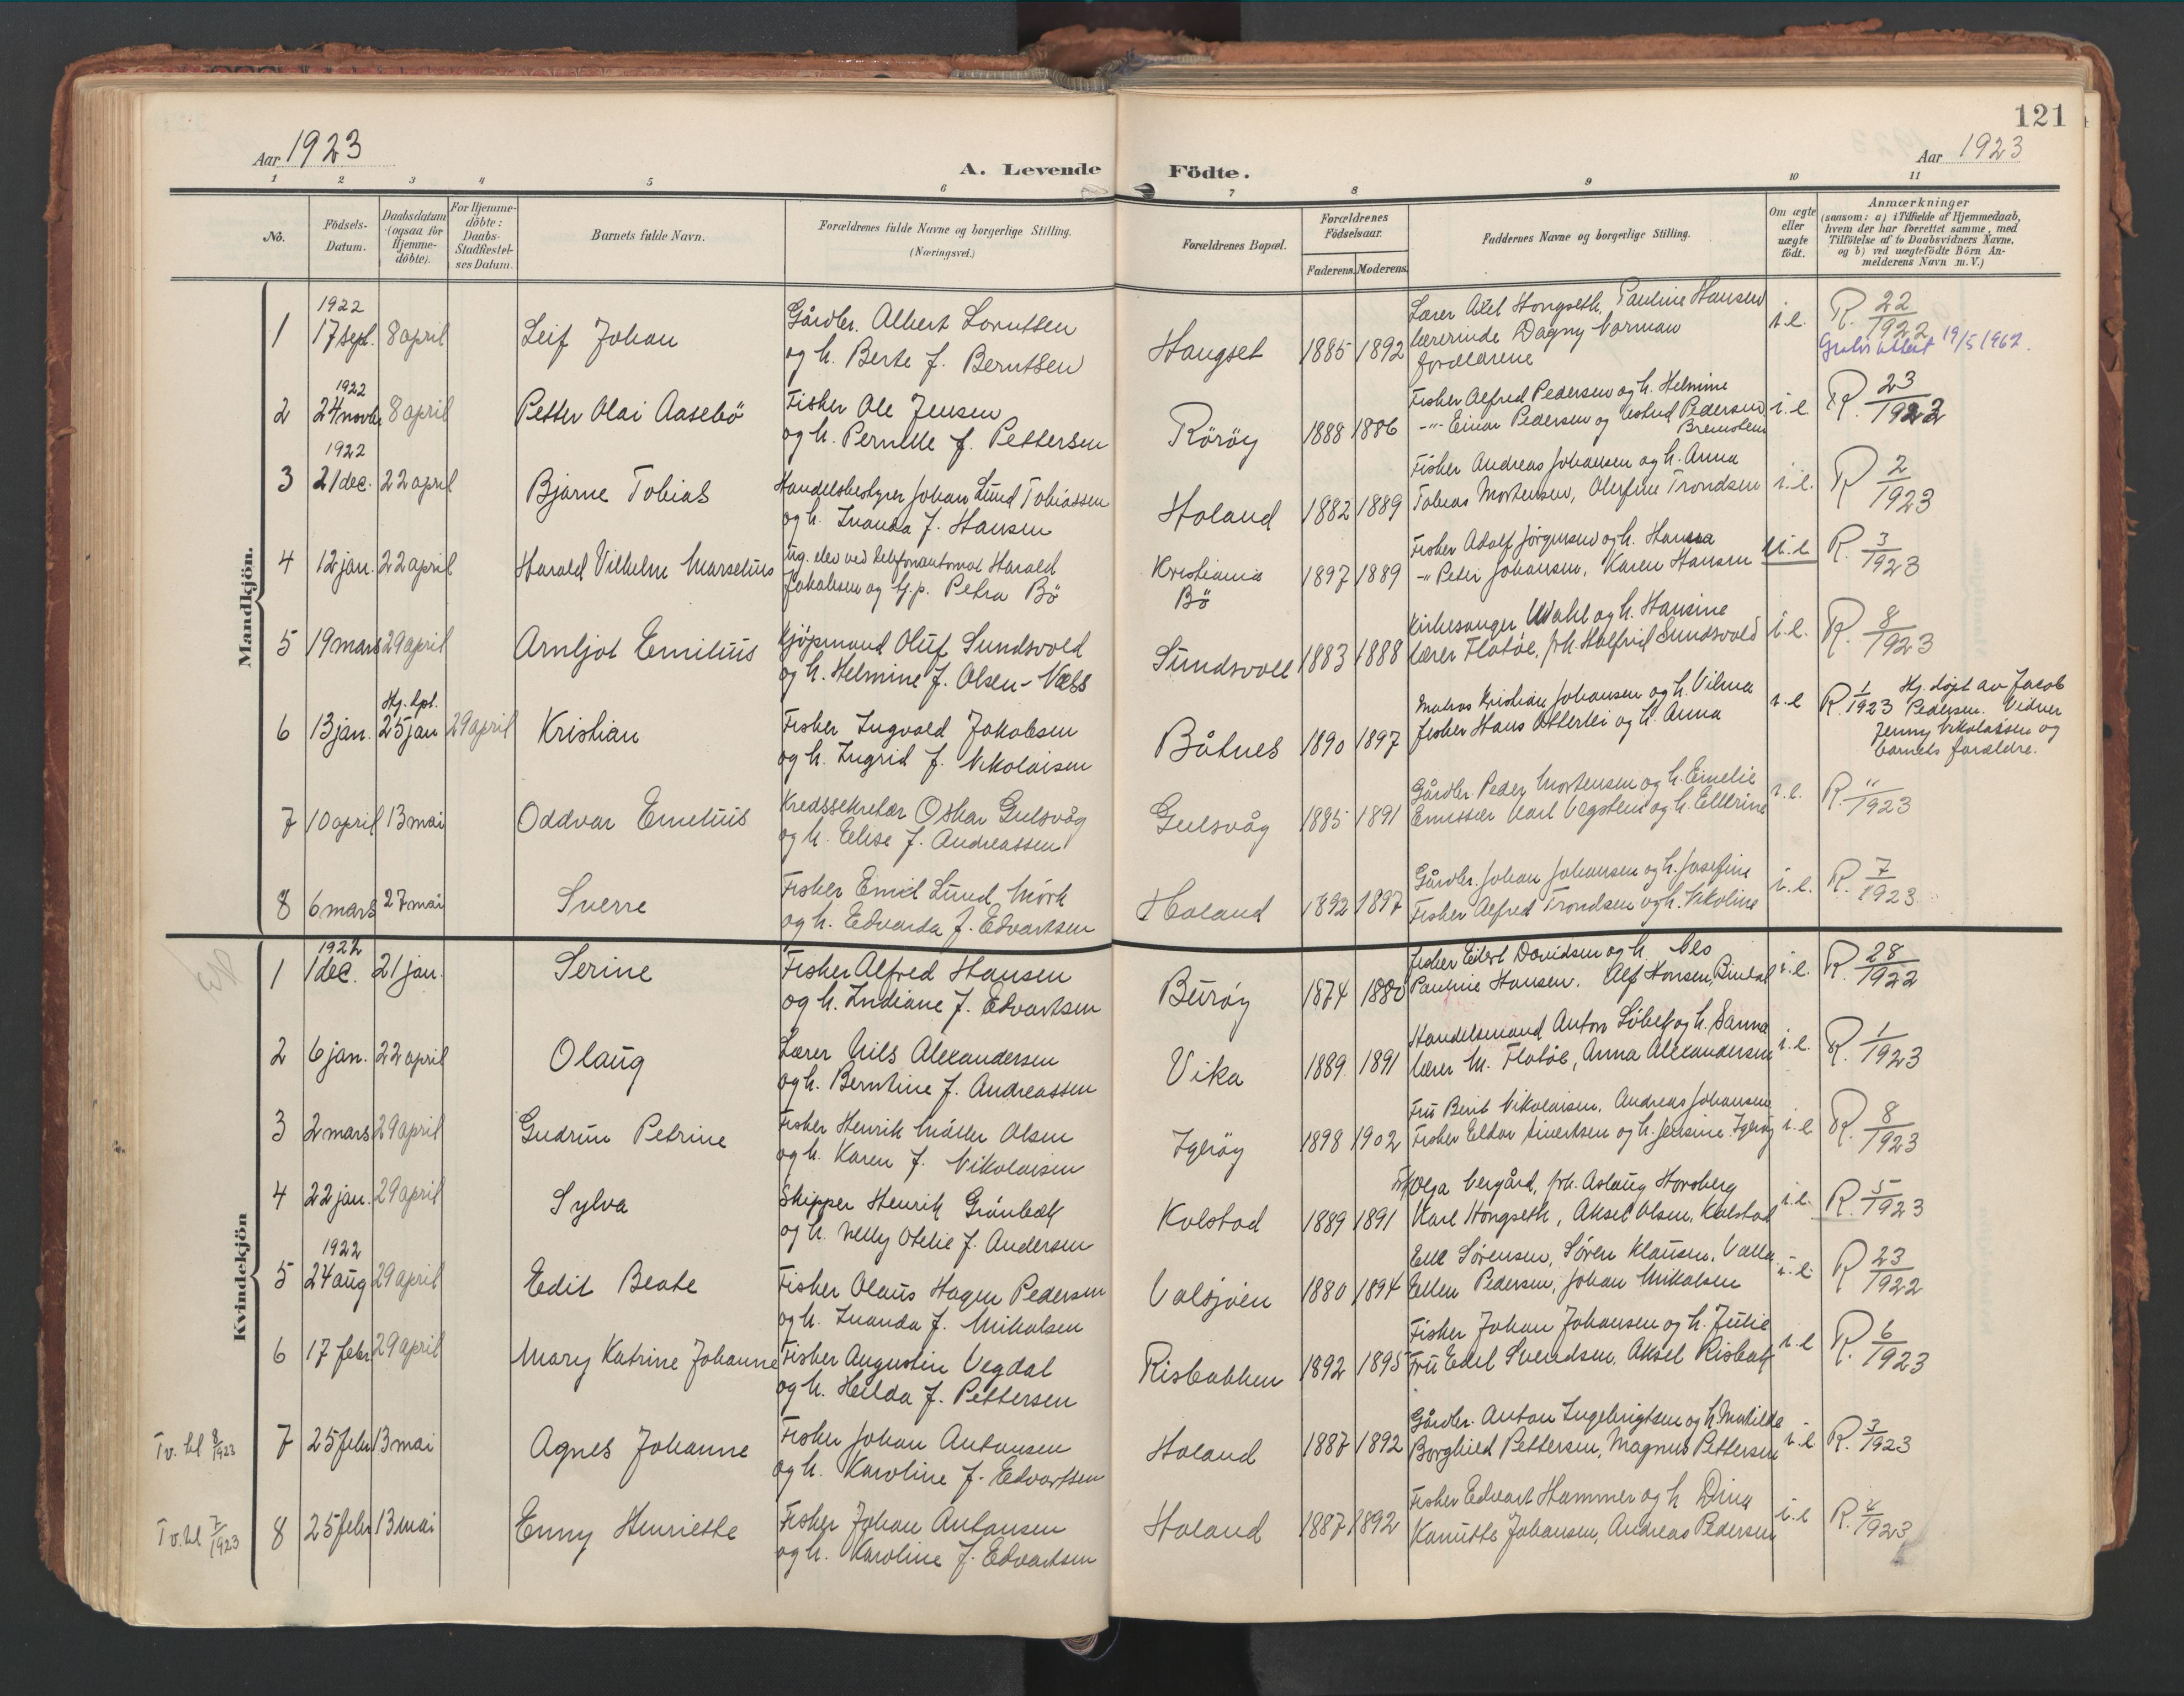 121
Aar 1923
A. Levende Födte.
Aar 1923
1 2 3 4 5 6 7 8 9 10 11
No.
Födsels-Datum.
Daabsdatum (ogsaa for Hjemme-döbte).
For Hjemme-döbte: Daabs-Stadfæstel-ses Datum.
Barnets fulde Navn.
Forældrenes fulde Navne og borgerlige Stilling. (Næringsvei.)
Forældrenes Bopæl.
Forældrenes Födselsaar.
Faderens. Moderens.
Faddernes Navne og borgerlige Stilling.
Om ægte eller uægte födt.
Anmærkninger
(saasom: a) i Tilfælde af Hjemmedaab, hvem der har forrettet samme, med Tilföielse af to Daabsvidners Navne, og b) ved uægtefödte Börn An-melderens Navn m. V.)
Mandkjön.
1922
1 17 sept. 8 april Leif Johan Gårdbr. Albert Lorntsen Haugset 1885 1892 Lærer Axel Hongseth, Pauline Hansen i.e. R. 22/1922
og h. Berte f. Berntsen lærerinde Dagny Norman
forældrene 19/5 1962.
1922
2 24 novbr 8 april Petter Olai Aasebö Fisker Ole Jensen Röröy 1888 1886 Fisker Alfred Pedersen og h. Helmine i.e. R. 23/1922
og h. Pernille f. Pettersen -"- Einar Pedersen og Pedersen
Bremstein
1922
3 21 dec. 22 april Bjarne Tobias Handelsbestyrer Johan Lund Tobiassen Holand 1882 1889 Fisker Andreas Johansen og h. Anna i.e. R 2/1923
og h. Inanda f. Hansen Tobias Mortensen, Olufine Trondsen
4 12 jan. 22 april Harald Vilhelm Marselius Ug. elev ved telefonautomat Harald Kristiania 1897 1889 Fisker Adolf Jörgensen og h. Hanna u.e. R. 3/1923
Jakobsen og tj.p. Petra Bö Bö -"- Peter Johansen, Karen Hansen
5 19 mars 29 april Arnljot Emilius Kjöpmand Oluf Sundsvold Sundsvoll 1883 1888 Kirkesanger Wahl og h. Hansine i.e. R. 8/1923
og h. Helmine f. Olsen-Næss lærer Flatöe, frk. Halfrid Sundsvold
Hj. dpt.
6 13 jan. 25 jan 29 april Kristian Fisker Ingvald Jakobsen Båtnes 1890 1897 Matros Kristian Johansen og h. Vilma i.e R. 1/1923 Hj. döpt av Jacob
og h. Ingrid f. Nikolaisen fisker Hans Otterlei og h. Anna Pedersen. Vidner
Jenny Nikolaisen og
barnets forældre.
7 10 april 13 mai Oddvar Emelius Kredssekretær Oskar Gulsvåg Gulsvåg 1885 1891 Gårdbr. Peder Mortensen og h. Emelie i.e. R. 11/1923
og h. Elise f. Andreassen Emissær Karl Vegstein og h. Ellerine
8 6 mars 27 mai Sverre Fisker Emil Lund Mörk Holand 1892 1897 Gårdbr. Johan Johansen og h. Josefine i.e. R. 7/1923
og h. Edvarda f. Edvartsen Fisker Alfred Trondsen og h. Nikoline
Kvindekjön
1922
1 1 dec. 21 jan. Serine Fisker Alfred Hansen Buröy 1874 1880 fisker Edert Davidsen og h. i.e. R. 28/1922
og h. Indiane f. Edvartsen Pauline Hansen. Alf Hansen, Bindal
2 6 jan. 22 april Olaug Lærer Nils Alexandersen Vika 1889 1891 Handelsmand Anton Löbek og h. Sanna i.e. R. 1/1923
og h. Berntine f. Andreassen lærer M. Flatöe, Anna Alexandersen
3 2 mars 29 april Gudrun Petrine Fisker Henrik Müller Olsen Igeröy 1898 1902 Fru Berit Nikolaisen, Andreas Johansen i.e R. 8/1923
og h. Karen f. Nikolaisen Fisker Eldor Sivertsen og h. Jensine Igeröy
4 22 jan. 29 april Sylva Skipper Henrik Grönbæk Kolstad 1889 1891 Olga Vergård, frk. Aslaug Horsberg i.e. R. 5/1923
og h. Nelly Otelie f. Andersen Karl Hongseth, Aksel Olsen, Kolstad
1922
5 24 aug 29 april Edit Beate Fisker Olaus Hagen Pedersen Valsjöen 1880 1894 Elle Sörensen, Sören Klausen, Valla i.e. R 23/1922
og h. Inanda f. Mikalsen Ellen Pedersen, Johan Mikalsen
6 17 febr 29 april Mary Katrine Johanne Fisker Augustin Vegdal Risbakken 1892 1895 Fisker Johan Johansen og h. Julie i.e R. 6/1923
og h. Hilda f. Pettersen Fru Edel Svendsen, Aksel Risbak
Tv. til 8/1923 7 25 febr 13 mai Agnes Johanne Fisker Johan Antonsen Holand 1887 1892 Gårdbr. Anton Ingebrigtsen og h. Matilde i.e R. 3/1923
og h. Karoline f. Edvartsen Borghild Pettersen, Magnus Pettersen
Tv. til 7/1923 8 25 febr 13 mai Enny Henriette Fisker Johan Antonsen Holand 1887 1892 Fisker Edvart Hammer og h Dina i.e R. 4/1923
og h. Karoline f. Edvartsen Kanutte Johansen, Andreas Pedersen